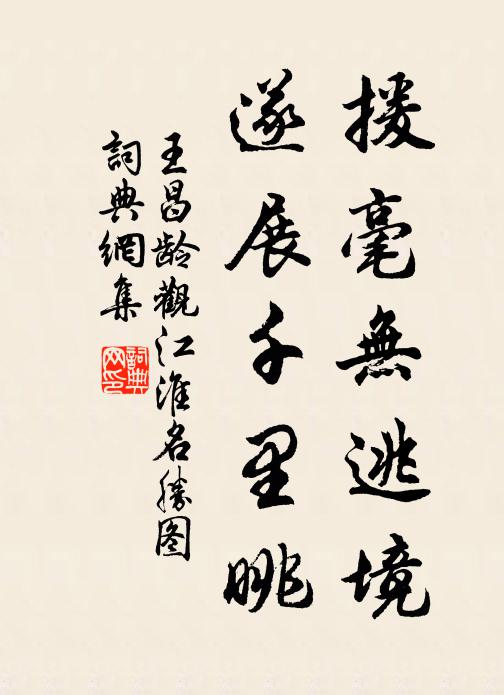 援毫無逃境
遂展千里眺
王昌龄觀江淮名勝图
詞典網集
詞典网印